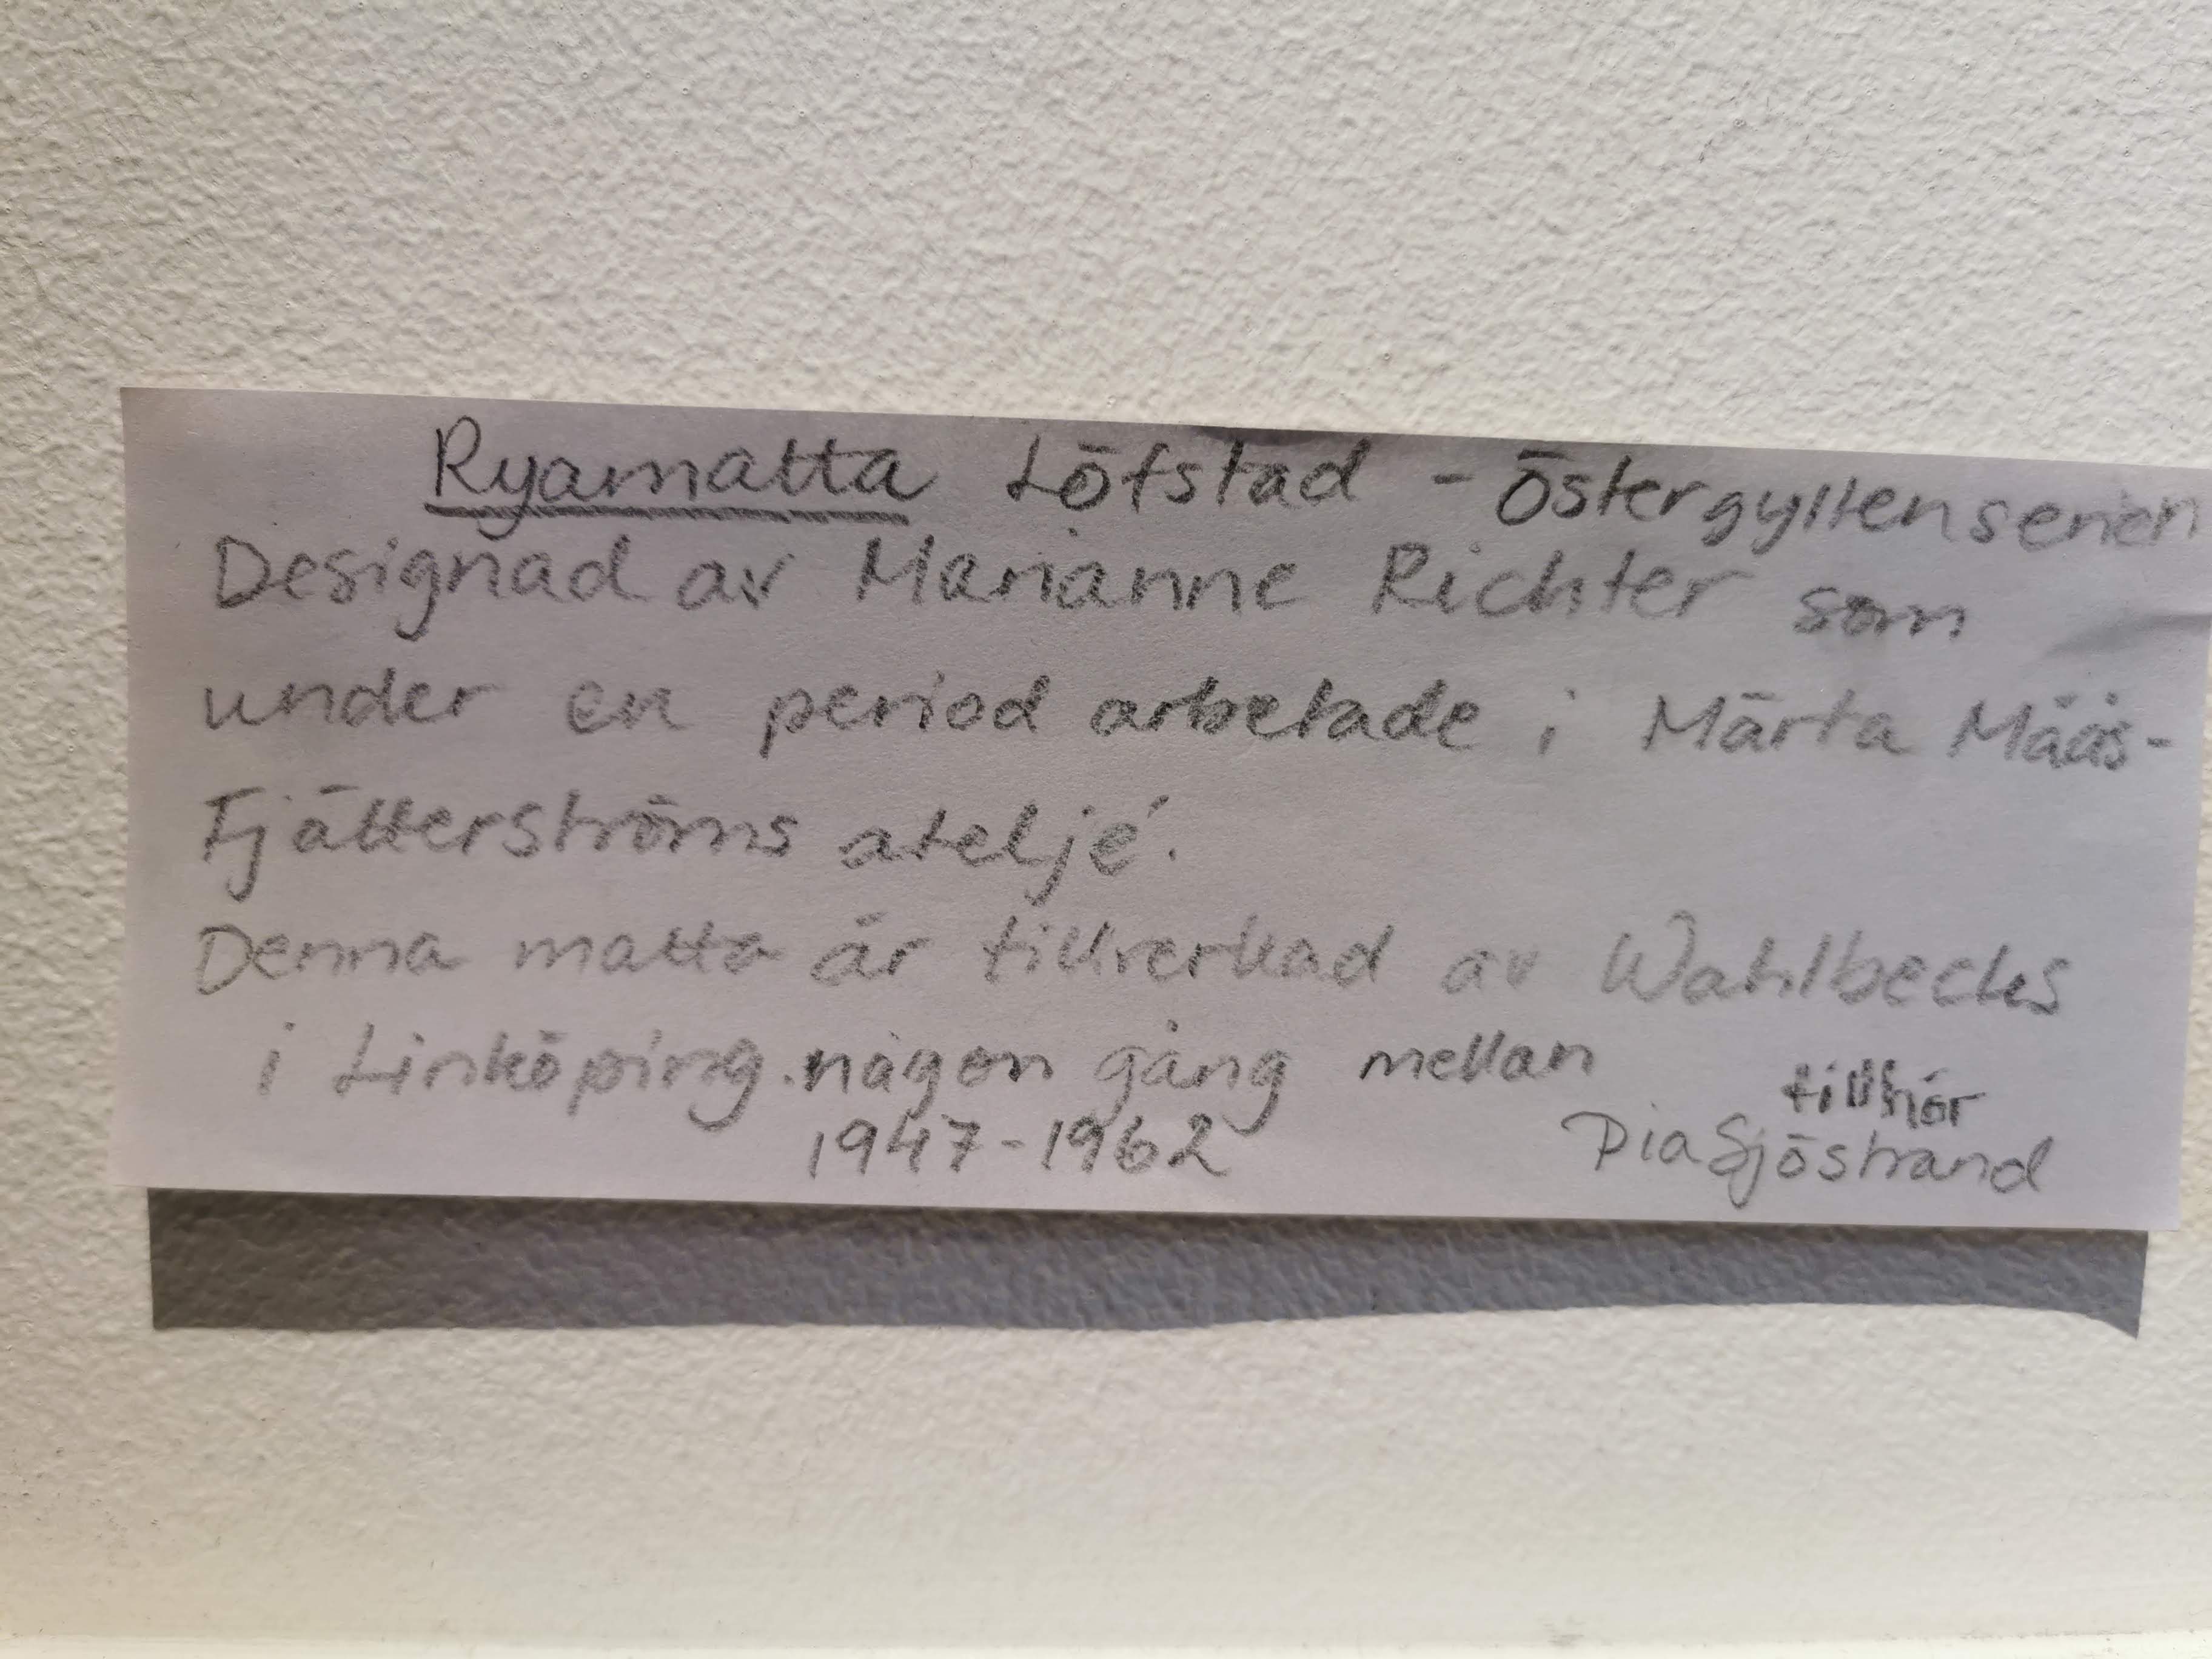 Ryamatta Löfstad - Östergyllenserien
Designad av Marianne Richter som
under en period arbetade i Märta Måås-
Fjätterströms ateljé.
Denna matta är tillverkad av Wahlbecks
i Linköping någon gång mellan
1947-1962
tillhör
Pia Sjöstrand